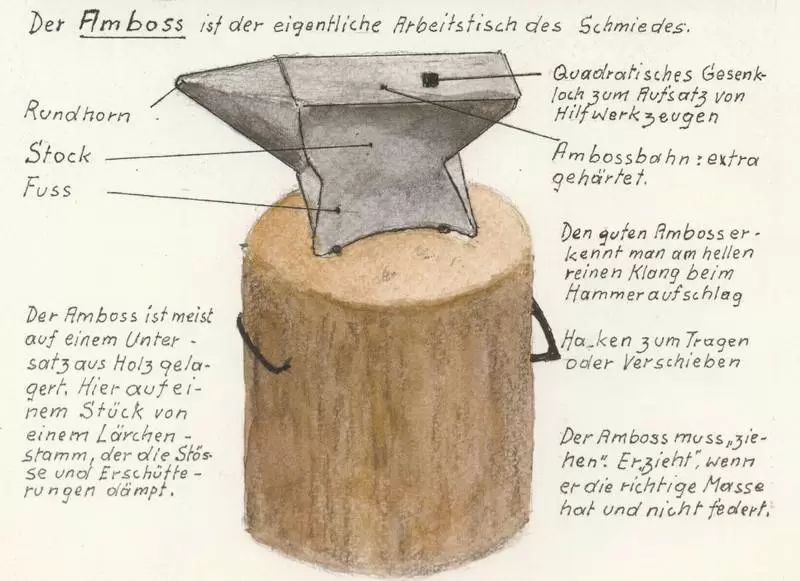 Der Amboss ist der eigentliche Arbeitstisch des Schmiedes.
Rundhorn
Stock
Fuss
Quadratisches Gesenk-
loch zum Aufsatz von
Hilfwerkzeugen
Ambossbahn: extra
gehärtet.
Den guten Amboss er-
kennt man am hellen
reinen Klang beim
Hammeraufschlag
Haken zum Tragen
oder Verschieben
Der Amboss ist meist
auf einem Unter-
satz aus Holz gela-
gert. Hier auf ei-
nem Stück von
einem Lärchen-
stamm, der die Stös-
se und Erschütte-
rungen dämpft.
Der Amboss muss „zie-
hen". Er „zieht", wenn
er die richtige Masse
hat und nicht federt.